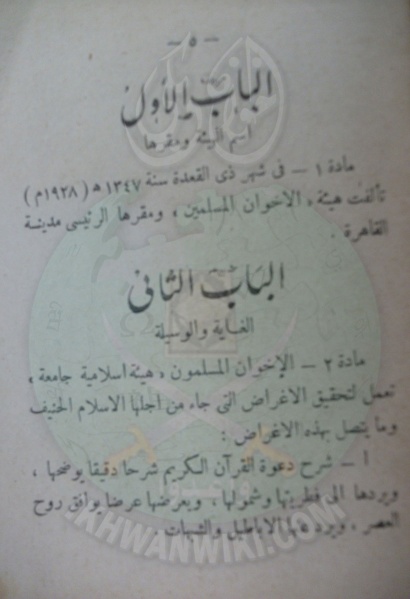 — ٥ —
الباب الأول
اسم الهيئة ومقرها
مادة ١ — فى شهر ذى القعدة سنة ١٣٤٧ ه (١٩٢٨م)
تألفت هيئة «الاخوان المسلمين» ومقرها الرئيسى مدينة
القاهرة .
الباب الثانى
الغاية والوسيلة
مادة ٢ — الإخوان المسلمون، هيئة اسلامية جامعة،
تعمل لتحقيق الاغراض التى جاء من أجلها الاسلام الحنيف
وما يتصل بهذه الاغراض :
أ — شرح دعوة القرآن الكريم شرحا دقيقا يوضحها،
ويردها الى فطريتها وشمولها، ويعرضها عرضا يوافق روح
العصر، ويرد عنها الاباطيل والشبهات .
IKHWANWIKI.COM